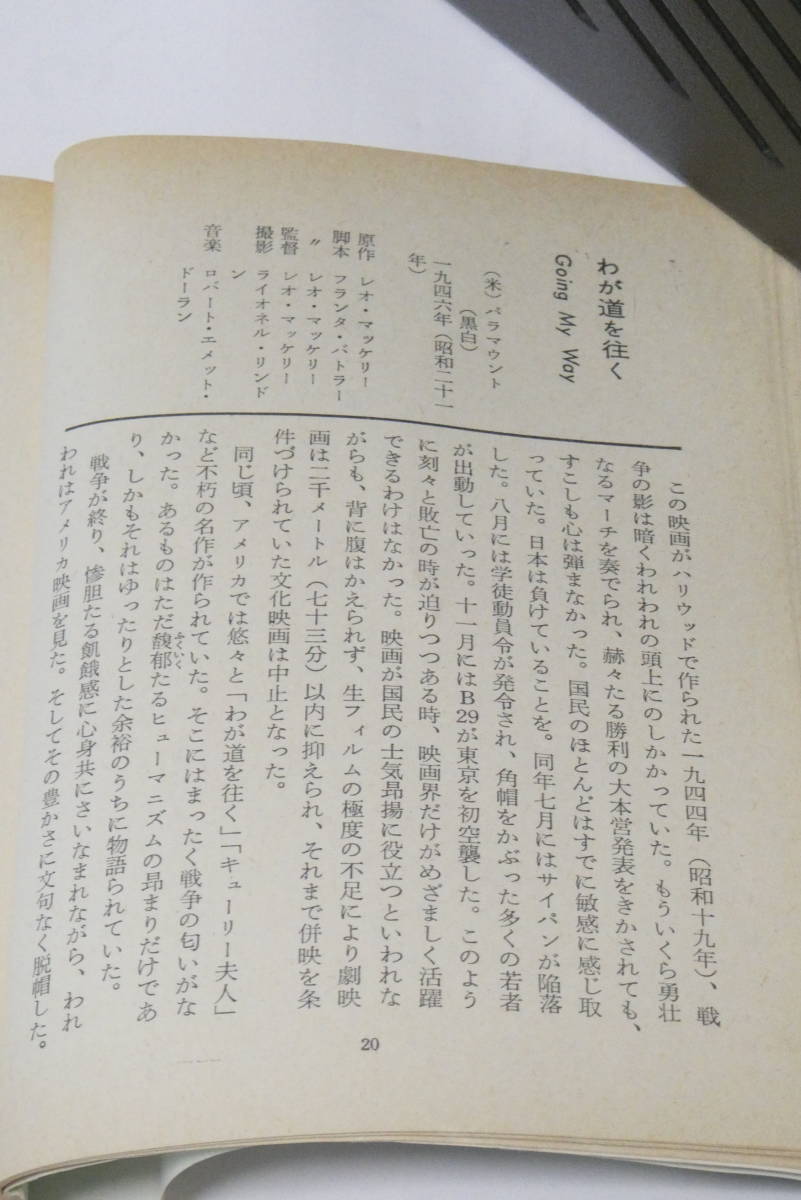 わが道を往く
Going My Way
（米）パラマウント
（黒白）
一九四六年（昭和二十一
年）
原作　レオ・マッケリー
脚本　フランク・バトラー
〃　レオ・マッケリー
監督　レオ・マッケリー
撮影　ライオネル・リンド
ン
音楽　ロバート・エメット・
ドーラン
この映画がハリウッドで作られた一九四四年（昭和十九年）、戦
争の影は暗くわれわれの頭上にのしかかっていた。もういくら勇壮
なるマーチを奏でられ、赫々たる勝利の大本営発表をきかされても、
すこしも心は弾まなかった。国民のほとんどはすでに敏感に感じ取
っていた。日本は負けていることを。同年七月にはサイパンが陥落
した。八月には学徒動員令が発令され、角帽をかぶった多くの若者
が出動していった。十一月にはB29が東京を初空襲した。このよう
に刻々と敗亡の時が迫りつつある時、映画界だけがめざましく活躍
できるわけはなかった。映画が国民の士気昂揚に役立つといわれな
がらも、背に腹はかえられず、生フィルムの極度の不足により劇映
画は二千メートル（七十三分）以内に抑えられ、それまで併映を条
件づけられていた文化映画は中止となった。
同じ頃、アメリカでは悠々と「わが道を往く」「キューリー夫人」
など不朽の名作が作られていた。そこにはまったく戦争の匂いがな
かった。あるものはただ馥郁ふくいくたるヒューマニズムの昂まりだけであ
り、しかもそれはゆったりとした余裕のうちに物語られていた。
戦争が終り、惨胆たる飢餓感に心身共にさいなまれながら、われ
われはアメリカ映画を見た。そしてその豊かさに文句なく脱帽した。
20